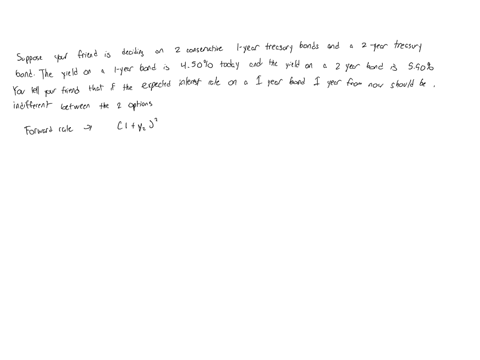 Suppose your friend is deciding on 2 consecutive 1-year treasury bonds and a 2-year treasury
bond. The yield on a 1-year bond is 4.50% today and the yield on a 2 year bond is 5.50%
You tell your friend that if the expected interest rate on a 1 year bond 1 year from now should be .
indifferent between the 2 options
Forward rate → (1+y₂)²